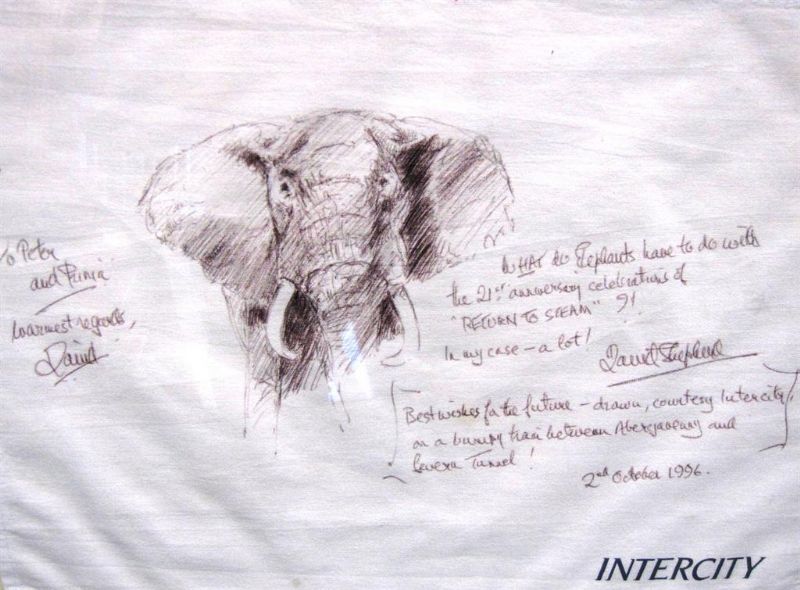 To Peter
and Punia
Warmest regards,
David
WHAT do Elephants have to do with
the 21st anniversary celebrations of
"RETURN TO STEAM" ?!
In my case - a lot!
David Shepherd
Best wishes for the future - drawn, courtesy Intercity,
on a bumpy train between Abergavenny and
Severn Tunnel!
2nd October 1996.
INTERCITY